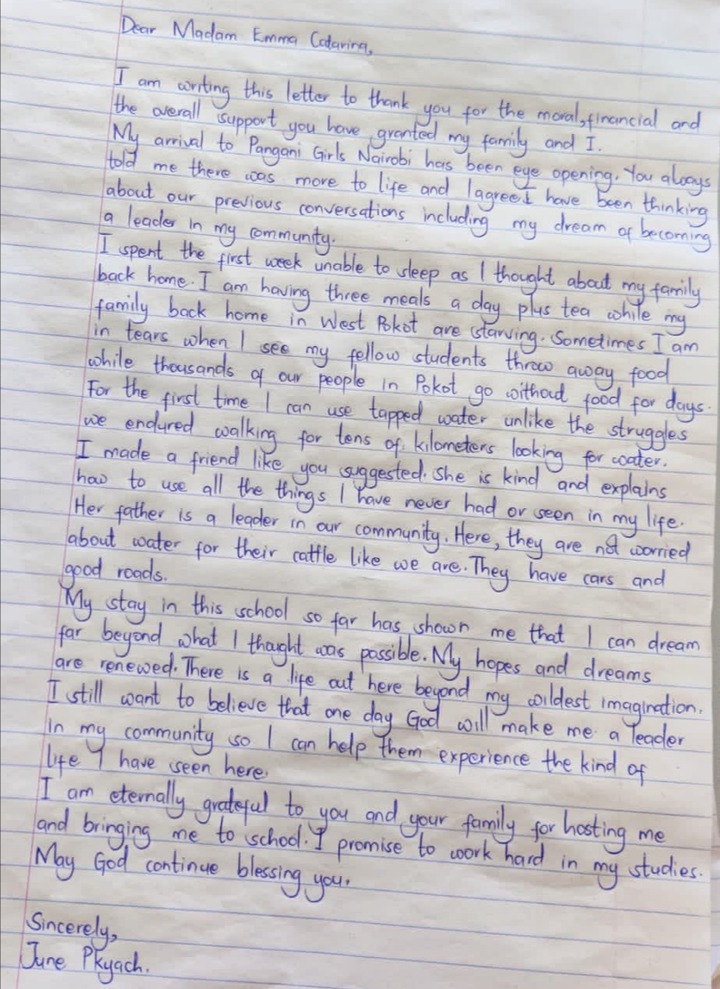 Dear Madam Emma Catarina,
I am writing this letter to thank you for the moral, financial and
the overall support you have granted my family and I.
My arrival to Pangani Girls Nairobi has been eye opening. You always
told me there was more to life and I agree. I have been thinking
about our previous conversations including my dream of becoming
a leader in my community.
I spent the first week unable to sleep as I thought about my family
back home. I am having three meals a day plus tea while my
family back home in West Pokot are starving. Sometimes I am
in tears when I see my fellow students throw away food
while thousands of our people in Pokot go without food for days.
For the first time I can use tapped water unlike the struggles
we endured walking for tens of kilometers looking for water.
I made a friend like you suggested. She is kind and explains
how to use all the things I have never had or seen in my life.
Her father is a leader in our community. Here, they are not worried
about water for their cattle like we are. They have cars and
good roads.
My stay in this school so far has shown me that I can dream
far beyond what I thought was possible. My hopes and dreams
are renewed. There is a life out here beyond my wildest imagination.
I still want to believe that one day God will make me a leader
in my community so I can help them experience the kind of
life I have seen here.
I am eternally grateful to you and your family for hosting me
and bringing me to school. I promise to work hard in my studies.
May God continue blessing you.
Sincerely,
June Pkyach.